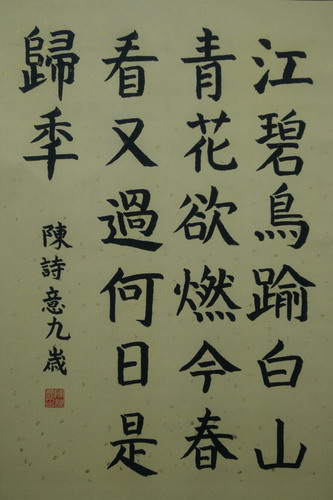 江碧鳥踰白山
青花欲燃今春
看又過何日是
歸季
陳詩意九歲